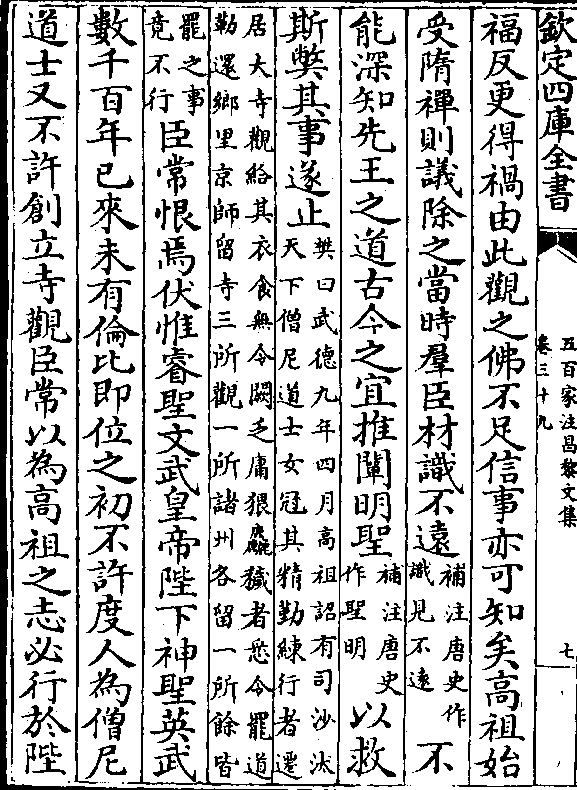 欽定四庫全書
五百家注昌黎文集
卷三十九
七
福反更得禍由此觀之佛不足信事亦可知矣高祖始
受隋禪則議除之當時羣臣材識不遠補注唐史作識見不遠不
能深知先王之道古今之宜推闡明聖補注唐史作聖明以救
斯獘其事遂止樊曰武德九年四月高祖詔有司沙汰天下僧尼道士女冠其精勤練行者遷
居大寺觀給其衣食無令闕乏庸猥麤穢者悉令罷道勒還鄉里京師留寺三所觀一所諸州各留一所餘皆
罷之事竟不行臣常恨焉伏惟睿聖文武皇帝陛下神聖英武
數千百年已來未有倫比即位之初不許度人為僧尼
道士又不許創立寺觀臣常以為高祖之志必行於陛